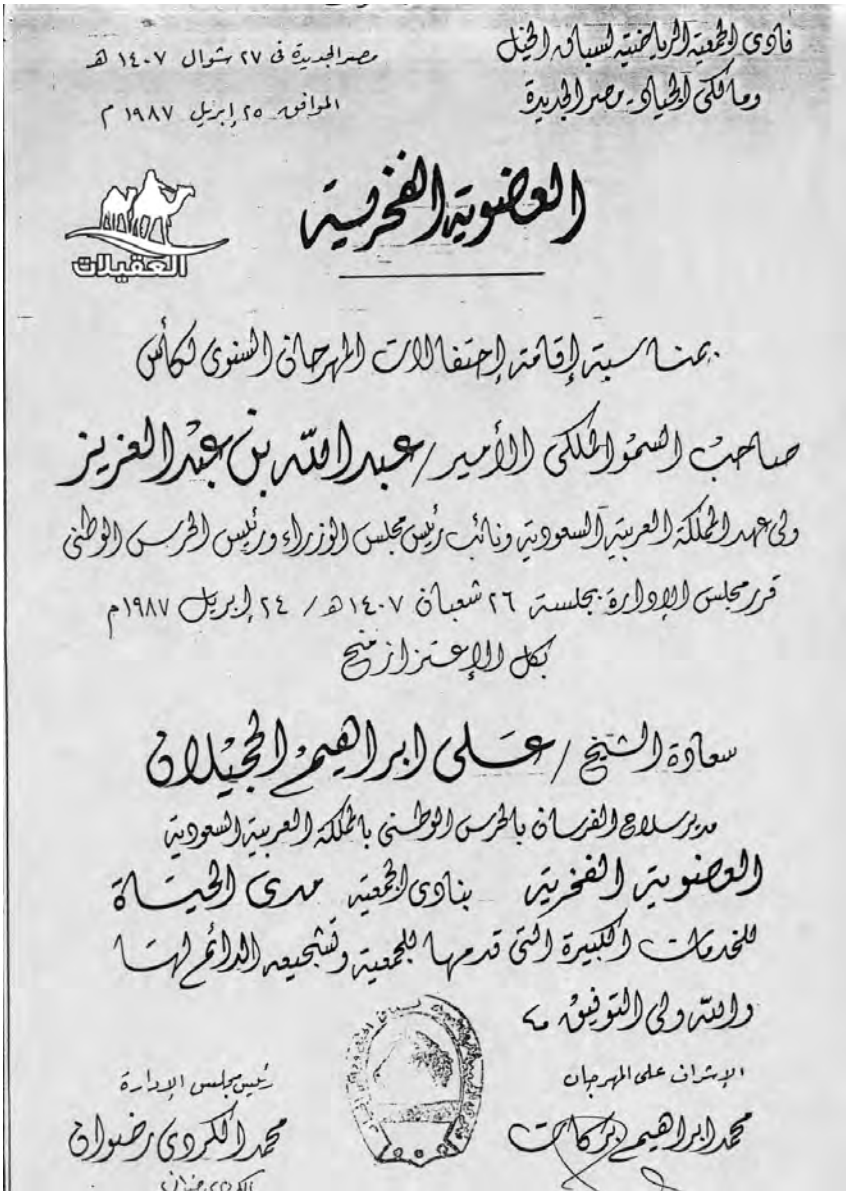 نادى الجمعية الرياضية لسباق الخيل
ومالكى الجياد - مصر الجديدة
مصر الجديدة فى ٢٧ شوال ١٤٠٧ هـ
الموافق ٢٥ إبريل ١٩٨٧ م
العضوية الفخرية
العقيلات
بمناسبة إقامة إحتفالات المهرجان السنوى لكأس
صاحب السمو الملكى الأمير / عبد الله بن عبد العزيز
ولى عهد المملكة العربية السعودية ونائب رئيس مجلس الوزراء ورئيس الحرس الوطنى
قرر مجلس الإدارة بجلسته ٢٦ شعبان ١٤٠٧ هـ / ٢٤ إبريل ١٩٨٧ م
بكل الإعتزاز منح
سعادة الشيخ / على ابراهيم الجيلان
مدير سلاح الفرسان بالحرس الوطنى بالمملكة العربية السعودية
العضوية الفخرية بنادى الجمعية مدى الحياة
للخدمات الكبيرة التى قدمها للجمعية وتشجيعه الدائم لها
والله ولى التوفيق
الإشراف على المهرجان
محمد ابراهيم بركات
رئيس مجلس الإدارة
محمد الكردى رضوان